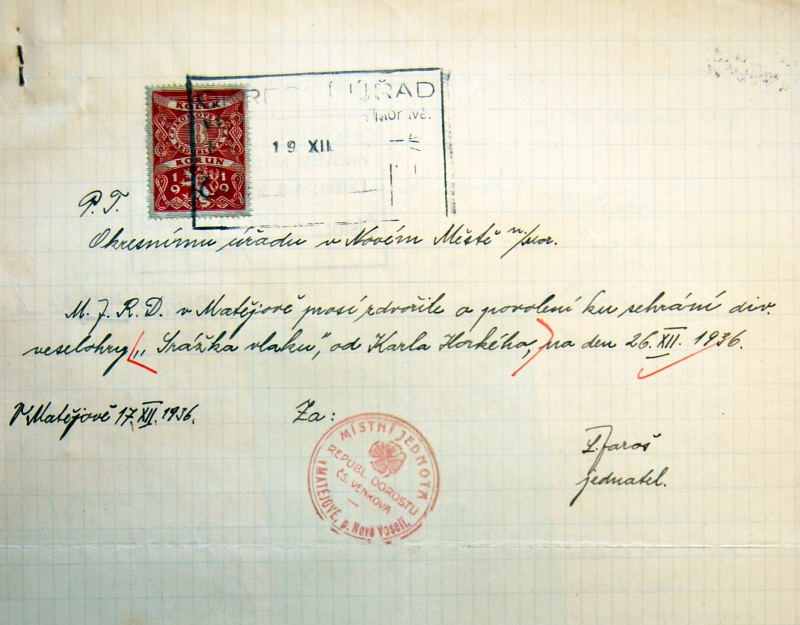 ÚŘAD
19 XII
KOLEK
8
KORUN
1919
P. T.
Okresnímu úřadu v Novém Městě n/mor.
M. J. R. D. v Matějově prosí zdvořile o povolení ku sehrání div.
veselohry „Srážka vlaku", od Karla Horkého, na den 26. XII. 1936.
V Matějově 17. XII. 1936.
Za:
MÍSTNÍ JEDNOTA
REPUBL. DOROSTU
ČS. VENKOVA
V MATĚJOVĚ, p. Nové Veselí.
L. Jaroš
jednatel.